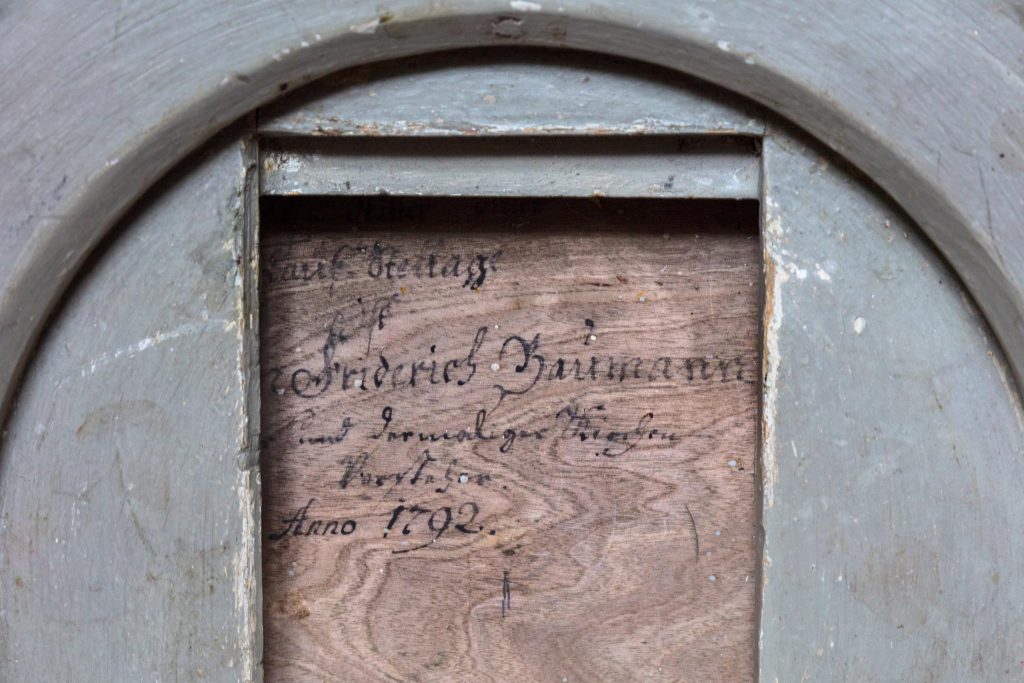 Tauf. Stellage
ist
Friderich Baumann
und dermaliger Kirchen
Vorsteher.
Anno 1792.